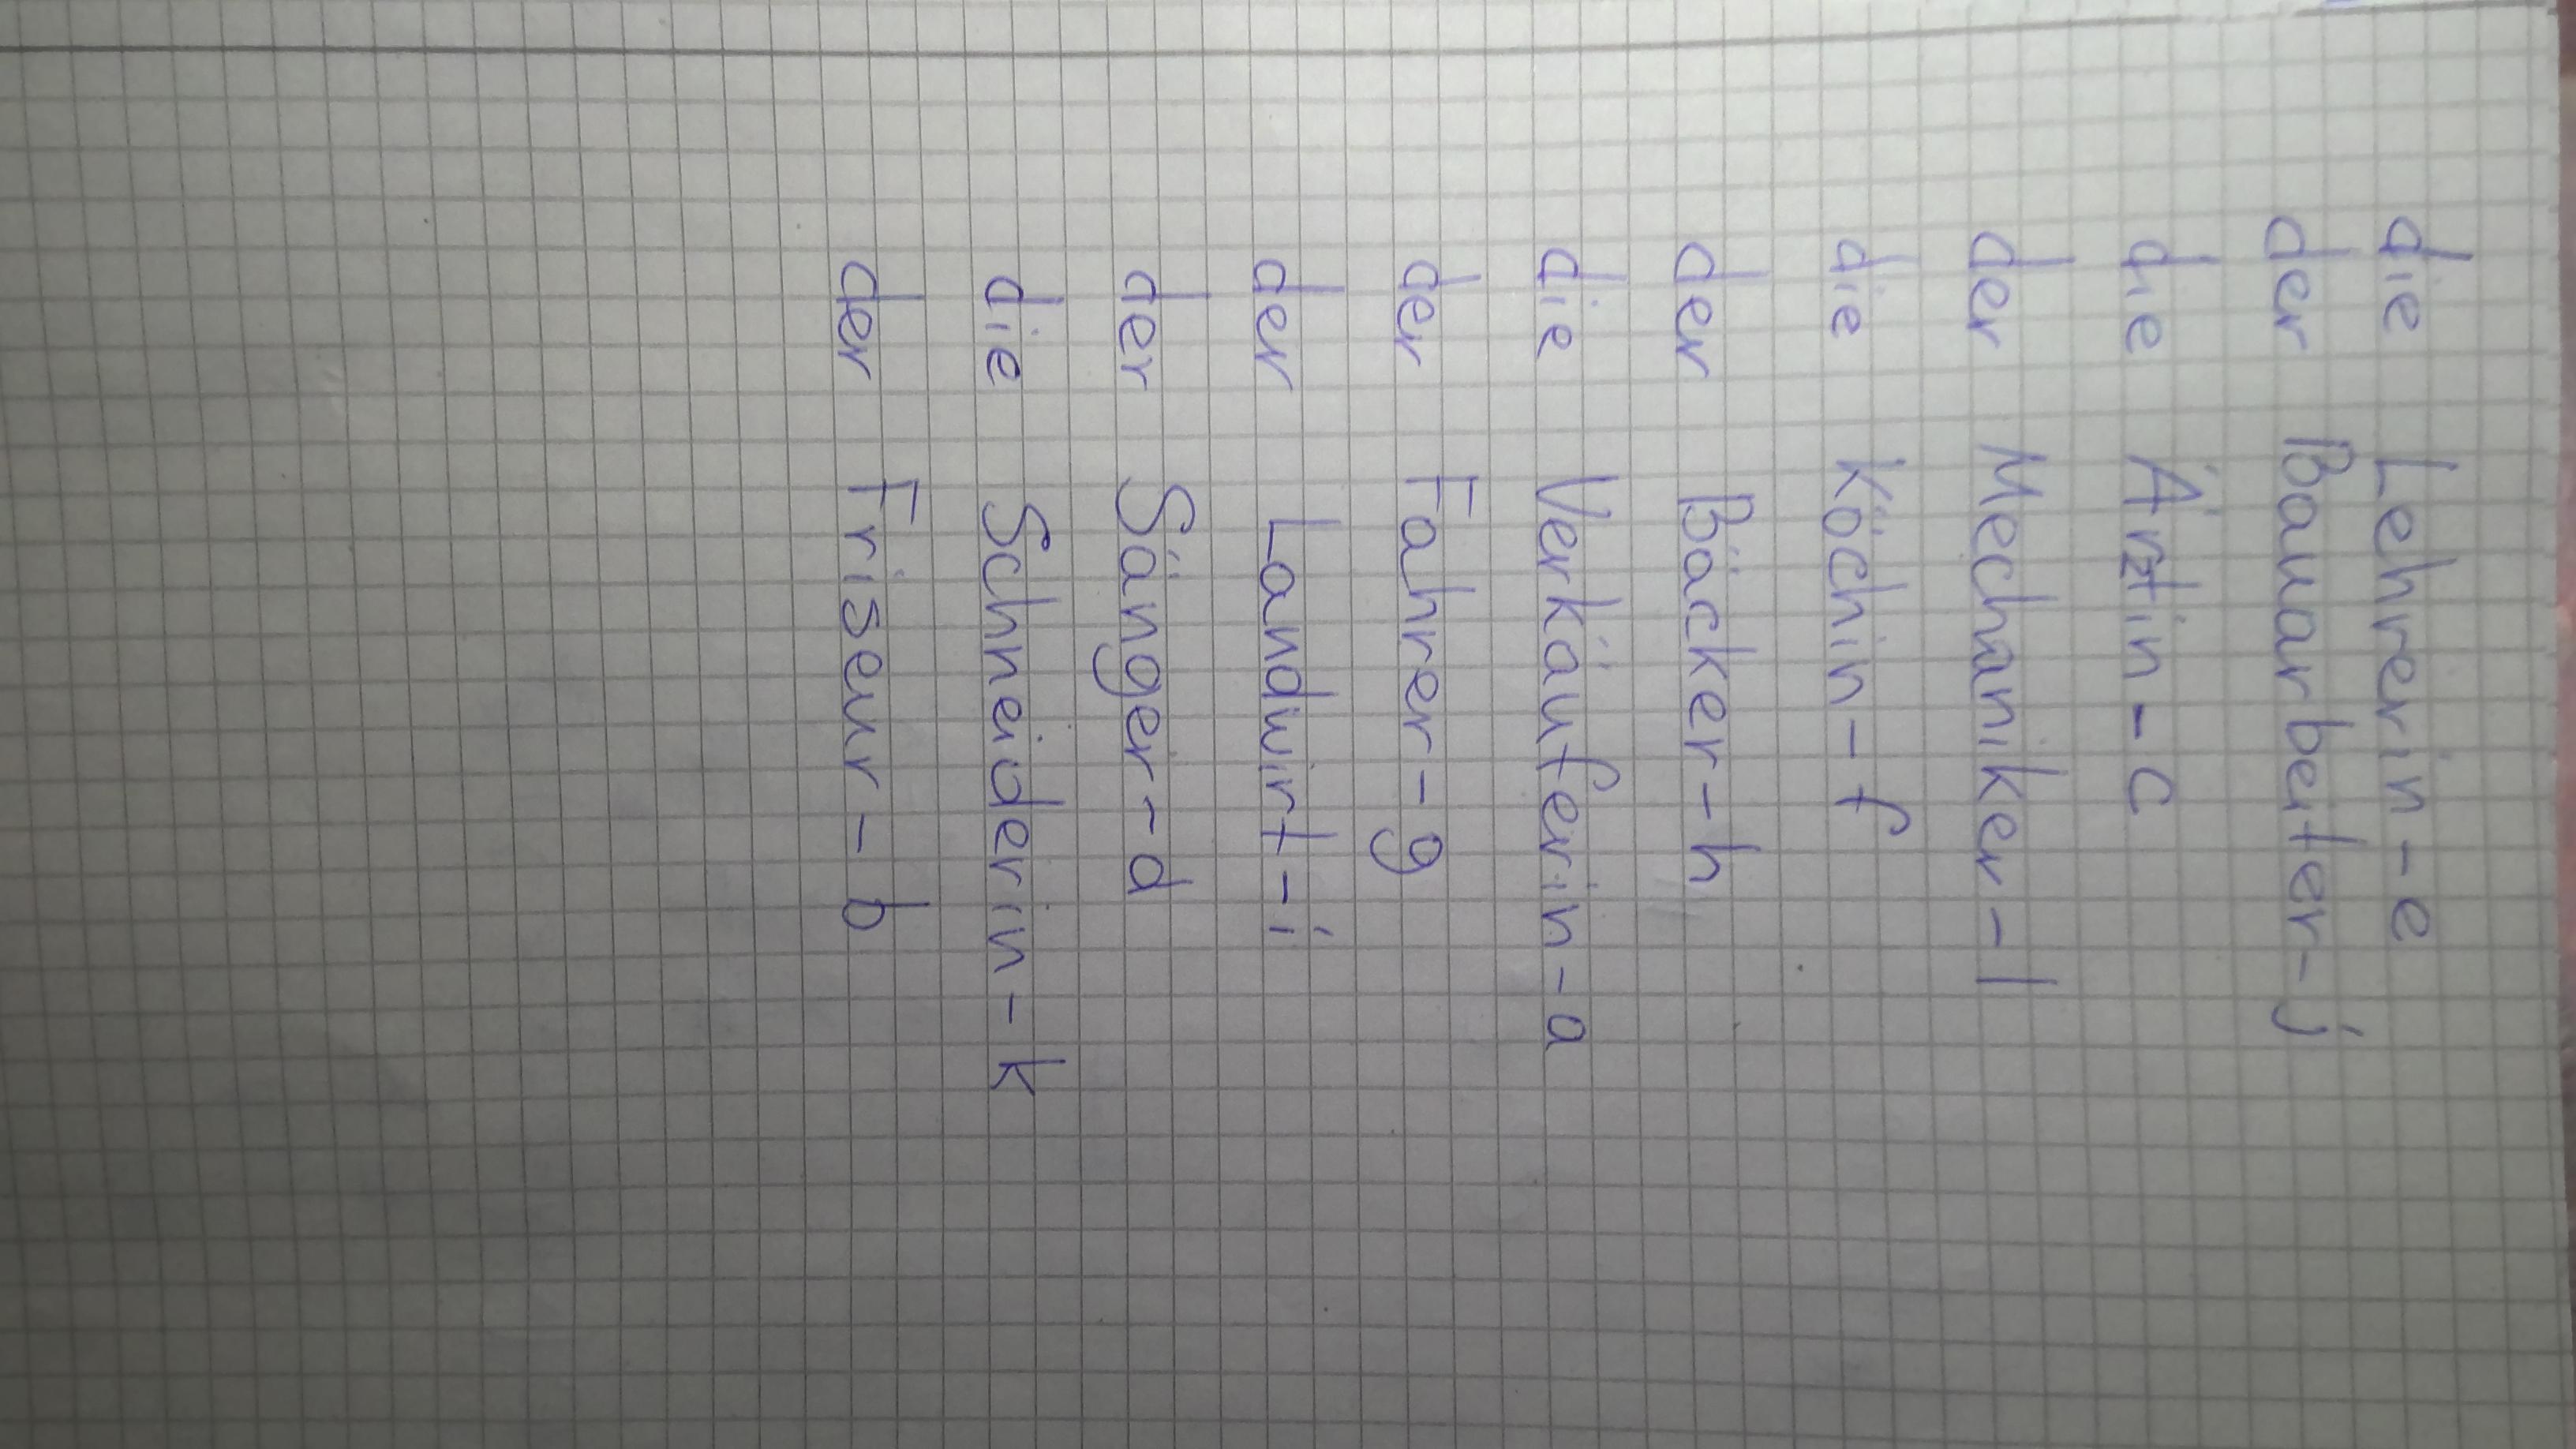 die Lehrerin - e
der Bauarbeiter - j
die Ärztin - c
der Mechaniker - l
die Köchin - f
der Bäcker - h
die Verkäuferin - a
der Fahrer - g
der Landwirt - i
der Sänger - d
die Schneiderin - k
der Friseur - b